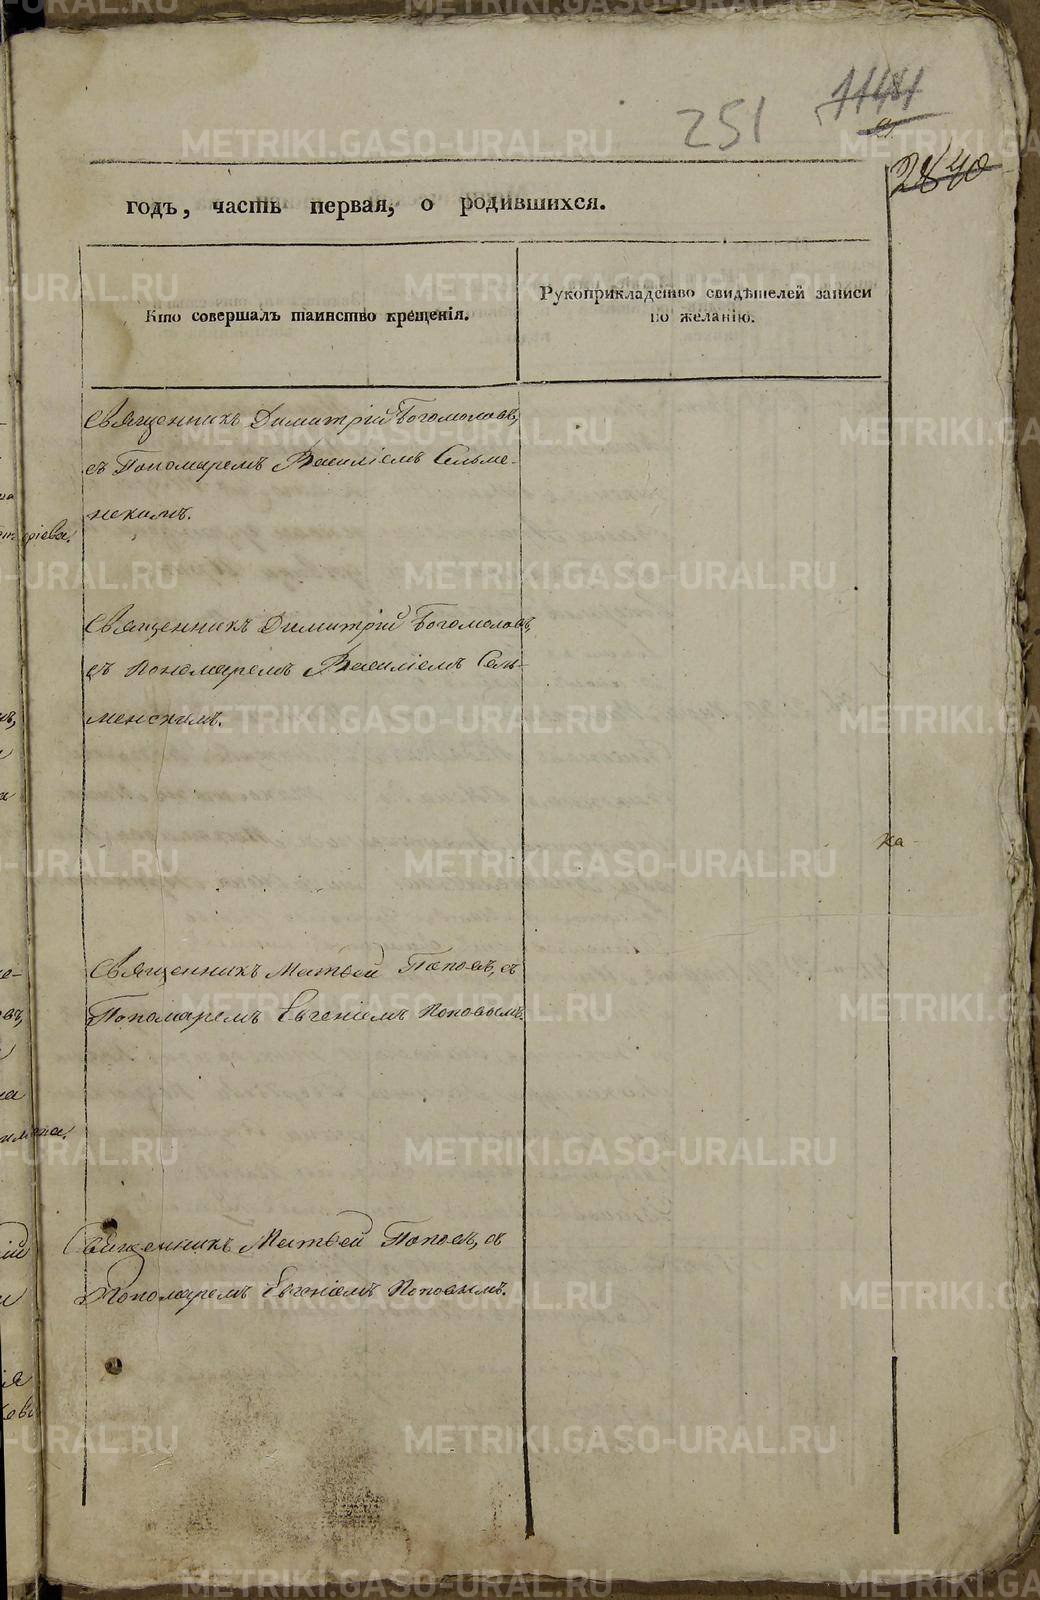 251 1141
2840
годъ, часть первая, о родившихся.
Кто совершалъ таинство крещенія.
Рукоприкладство свидѣтелей записи
по желанію.
Священникъ Димитрій Богомоловъ,
съ Пономаремъ Василіемъ Сельме-
нскимъ.
Священникъ Димитрій Богомоловъ,
съ Пономаремъ Василіемъ Сель-
менскимъ.
ка-
Священникъ Матвей Поповъ, съ
Пономаремъ Евгеніемъ Поповымъ.
Священникъ Матвей Поповъ, съ
Пономаремъ Евгеніемъ Поповымъ.
METRIKI.GASO-URAL.RU